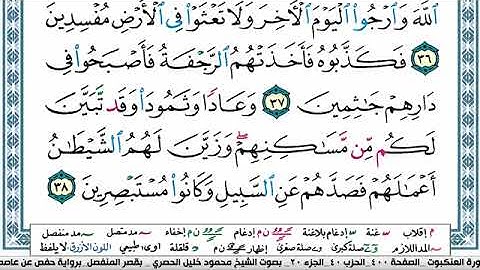 ٱللَّهَ وَٱرْجُوا۟ ٱلْيَوْمَ ٱلْـَٔاخِرَ وَلَا تَعْثَوْا۟ فِى ٱلْأَرْضِ مُفْسِدِينَ
٣٦ فَكَذَّبُوهُ فَأَخَذَتْهُمُ ٱلرَّجْفَةُ فَأَصْبَحُوا۟ فِى
دَارِهِمْ جَـٰثِمِينَ ٣٧ وَعَادًا وَثَمُودَا۟ وَقَد تَّبَيَّنَ
لَكُم مِّن مَّسَـٰكِنِهِمْ ۖ وَزَيَّنَ لَهُمُ ٱلشَّيْطَـٰنُ
أَعْمَـٰلَهُمْ فَصَدَّهُمْ عَنِ ٱلسَّبِيلِ وَكَانُوا۟ مُسْتَبْصِرِينَ ٣٨
م إقلاب غنة إدغام بلاغنة ن م إدغام ن م إخفاء مد متصل مد منفصل
المد اللازم صلة كبرى صلة صغرى إظهار ن م قلقلة اوى طبيعي اللون الأزرق لا يلفظ
سورة العنكبوت - الصفحة ٤٠٠ - الحزب ٤٠ - الجزء ٢٠ - بصوت الشيخ محمود خليل الحصري - بقصر المنفصل - برواية حفص عن عاصم